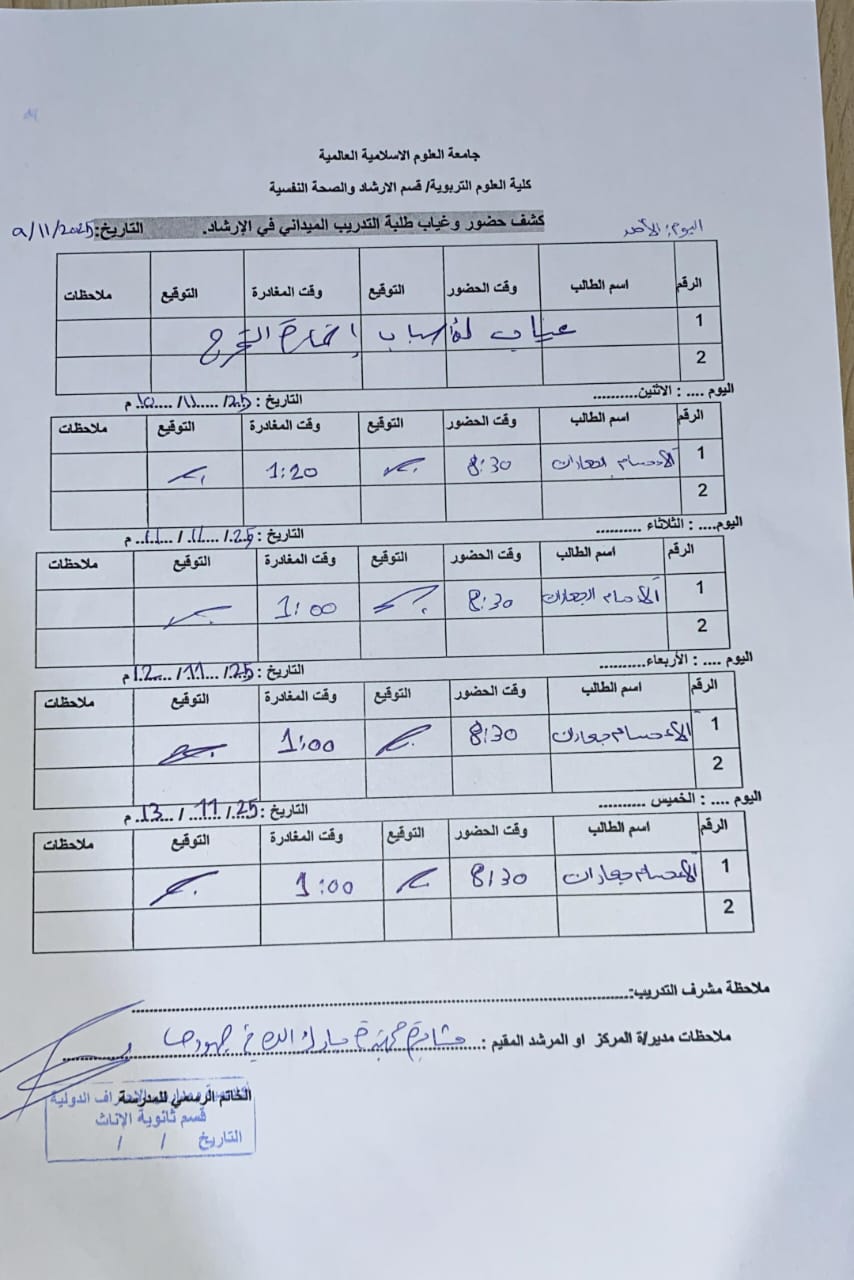 جامعة العلوم الاسلامية العالمية
كلية العلوم التربوية/ قسم الارشاد والصحة النفسية
اليوم: الأحد كشف حضور وغياب طلبة التدريب الميداني في الإرشاد. التاريخ: 9/11/2025
الرقم اسم الطالب وقت الحضور التوقيع وقت المغادرة التوقيع ملاحظات
1 غياب لأسباب التخرج
2
اليوم .... : الاثنين.......... التاريخ : 25/ .....11/ ....10.. م
الرقم اسم الطالب وقت الحضور التوقيع وقت المغادرة التوقيع ملاحظات
1 8:30 1:20
2
اليوم.... : الثلاثاء .......... التاريخ : 25/ ....11/ ....11.. م
الرقم اسم الطالب وقت الحضور التوقيع وقت المغادرة التوقيع ملاحظات
1 8:30 1:00
2
اليوم .... : الأربعاء.......... التاريخ : 25/ ...11/ ....12.م
الرقم اسم الطالب وقت الحضور التوقيع وقت المغادرة التوقيع ملاحظات
1 8:30 1:00
2
اليوم .... : الخميس .......... التاريخ : 25/ ...11/ ...13.. م
الرقم اسم الطالب وقت الحضور التوقيع وقت المغادرة التوقيع ملاحظات
1 8:30 1:00
2
ملاحظة مشرف التدريب:
ملاحظات مدير/ة المركز او المرشد المقيم : بارك الله في جهودها
الخاتم الرسمي للمدرسة
الدولية
قسم ثانوية الإناث
التاريخ / /